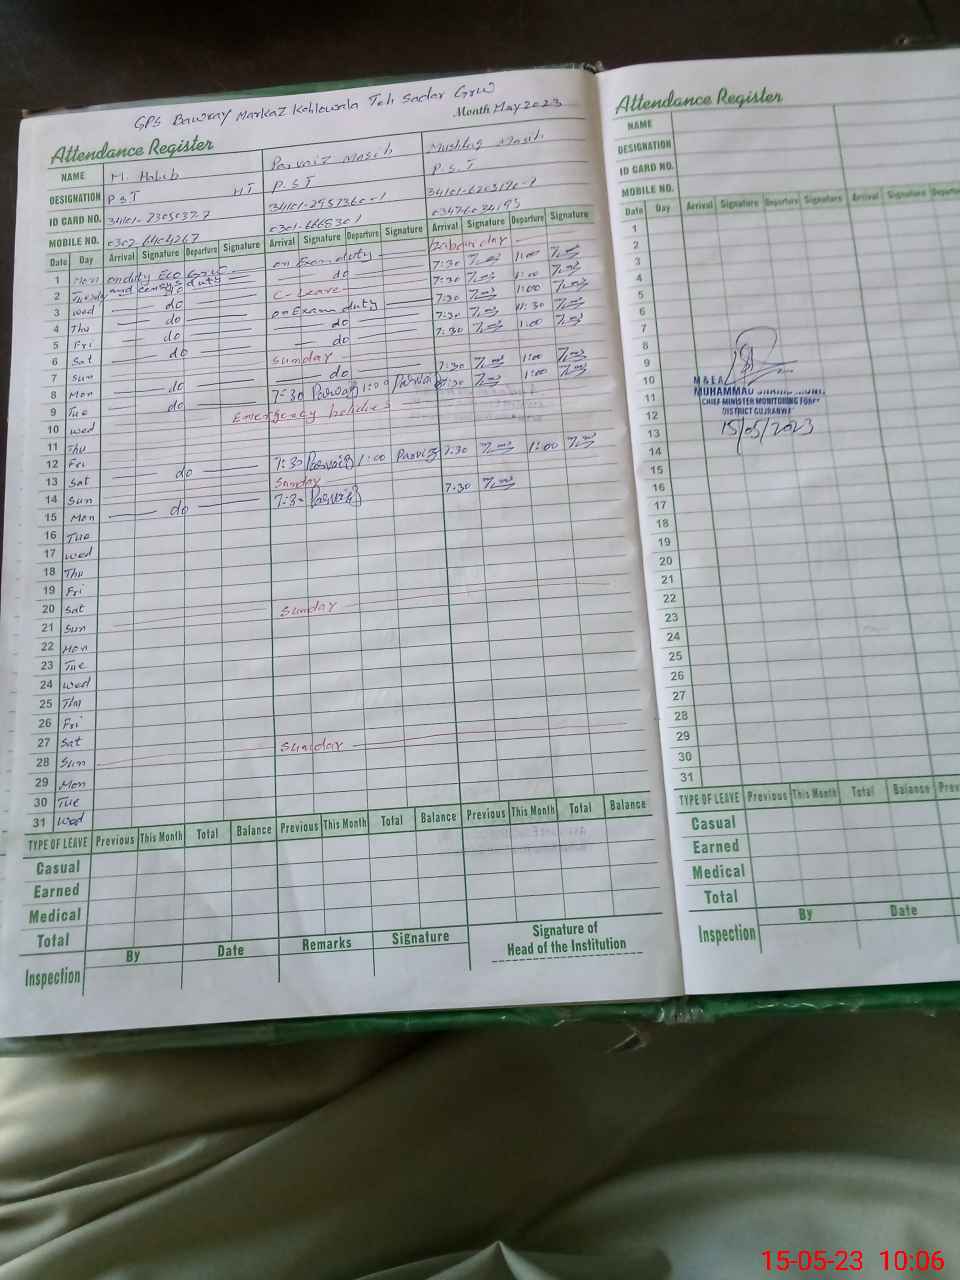 GPS Bawray Markaz Kohlowala Teh Sadar Grw
Month May 2023
Attendance Register
NAME M. Habib Parvaiz Masih Mushtaq Masih
DESIGNATION P.S.T H.T P.S.T P.S.T
ID CARD NO.
MOBILE NO.
Date Day Arrival Signature Departure Signature Arrival Signature Departure Signature Arrival Signature Departure Signature
1 Mon on duty on Exam duty Labour day
2 Tuesday and census duty do 7:30 1:00
3 Wed do C-Leave 7:30 1:00
4 Thu do on Exam duty 7:30 1:00
5 Fri do do 7:30 11:30
6 Sat do do 7:30 1:00
7 Sun Sunday
8 Mon do do 7:30 1:00
9 Tue do 7:30 Parvaiz 1:00 Parvaiz 7:30 1:00
10 Wed Emergency holidies
11 Thu
12 Fri
13 Sat do 7:30 Parvaiz 1:00 Parvaiz 7:30 1:00
14 Sun Sunday
15 Mon do 7:30 Parvaiz 7:30
16 Tue
17 Wed
18 Thu
19 Fri
20 Sat
21 Sun Sunday
22 Mon
23 Tue
24 Wed
25 Thu
26 Fri
27 Sat
28 Sun Sunday
29 Mon
30 Tue
31 Wed
TYPE OF LEAVE Previous This Month Total Balance Previous This Month Total Balance Previous This Month Total Balance
Casual
Earned
Medical
Total
Inspection By Date Remarks Signature Signature of
Head of the Institution
Attendance Register
NAME
DESIGNATION
ID CARD NO.
MOBILE NO.
Date Day Arrival Signature Departure Signature Arrival Signature
1
2
3
4
5
6
7
8
9
10
11
12
13
14
15
16
17
18
19
20
21
22
23
24
25
26
27
28
29
30
31
M & E A
MUHAMMAD
CHIEF MINISTER MONITORING FORCE
DISTRICT GUJRANWALA
15/05/2023
TYPE OF LEAVE Previous This Month Total Balance
Casual
Earned
Medical
Total
Inspection By Date
15-05-23 10:06